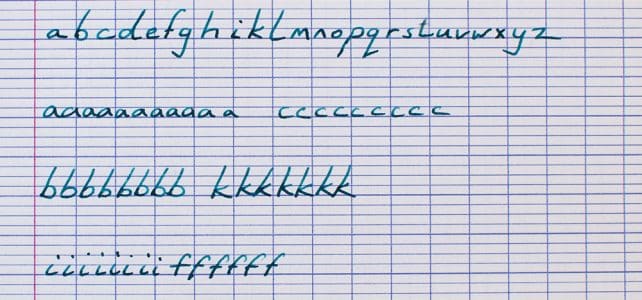 abcdefghiklmnopqrstuvwxyz
aaaaaaaaaaa ccccccccc
bbbbbbbb kkkkkkk
iiiiiiii ffffff